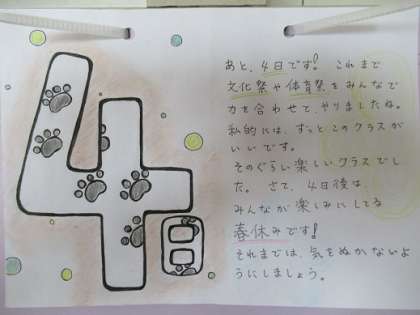 4日
あと、4日です! これまで
文化祭や体育祭をみんなで
力を合わせて、やりましたね。
私的には、ずっとこのクラスが
いいです。
そのぐらい楽しいクラスでし
た。 さて、4日後は
みんなが楽しみにしてる
春休みです!
それまでは、気をぬかないよ
うにしましょう。